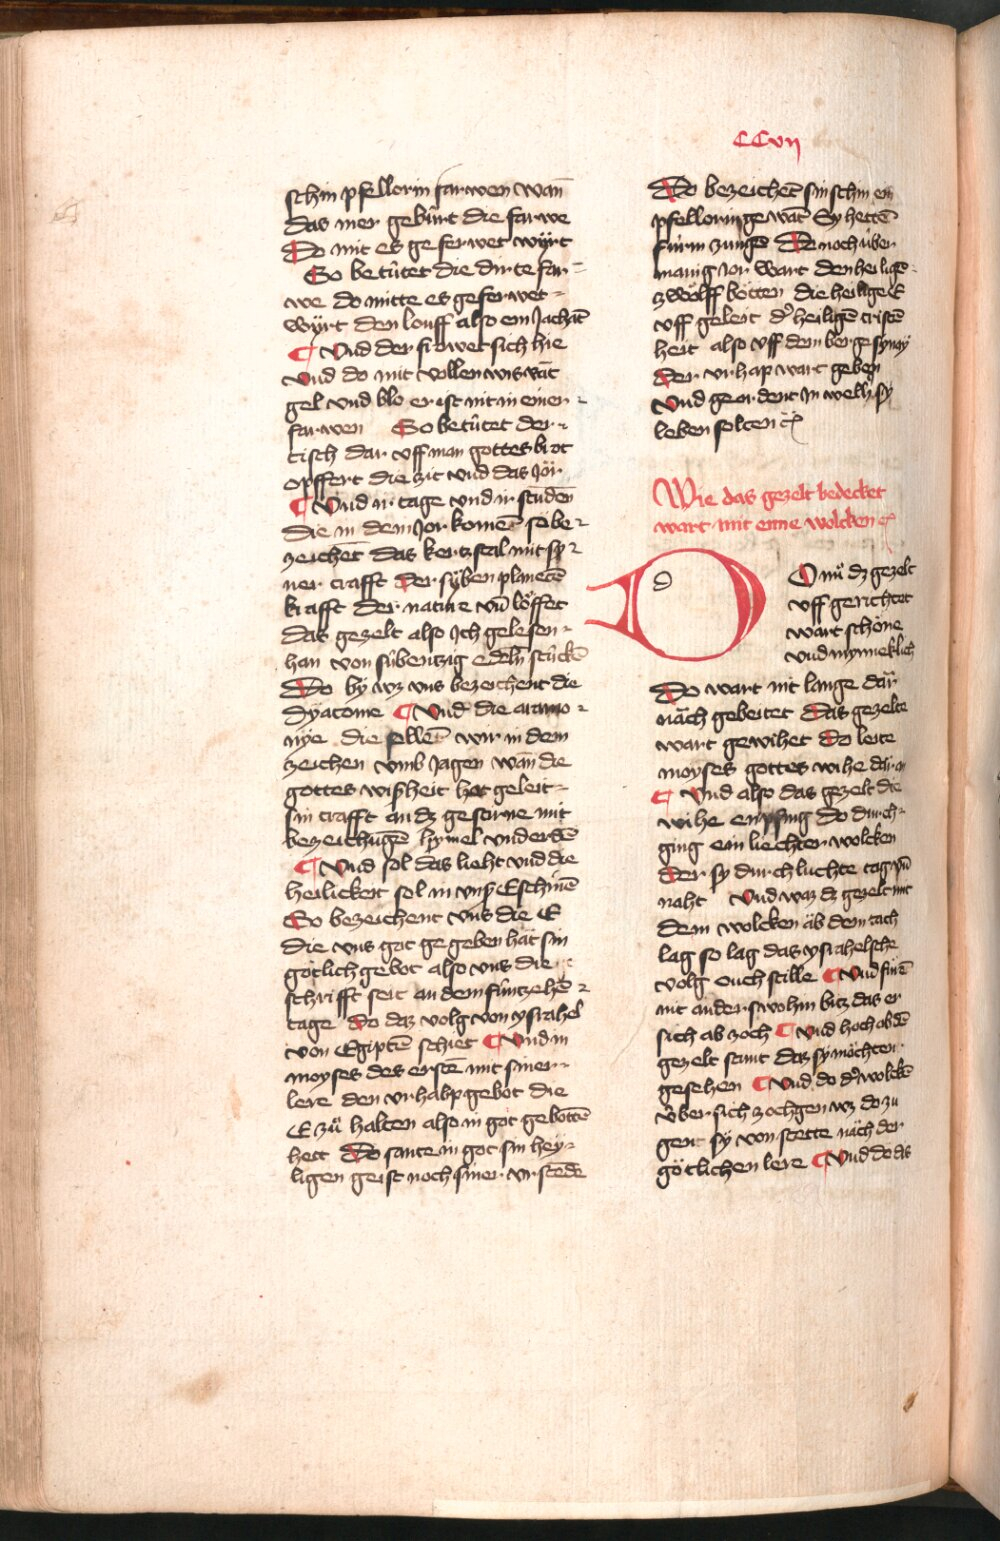 CCvii
schin pfellorin farwen wan̄
das mer gebürt die farwe
Do mit es geferwet wÿrt
So betûtet die dirte far⸗
we do mitte es geferwet⸗
wÿrt den louff also ein Jachāt
¶ Vnd der frowet sich hie
Vnd do mit vollen wis rāt
gel vnd blo er ist nit in einer⸗
farwen So betûtet der⸗
tisch dar vff man gottes brot
opffert die zit vnd das Jör
¶ Vnd ir tage vnd ir studēn
die in dem Jor komēt so be⸗
zeichet das kertzstal mit sy⸗
ner crafft Der sÿben planetē
krafft der nature vn̄ löffet
das gezelt also Jch gelesen⸗
han von sübentzig edeln stückē
Do bÿ wz vns bezeichent die
dÿatome ¶ Vnd die aramo⸗
nÿe die sellēt wir in dem
zeichen vmb Jagen wan die
gottes wißheit het geleit⸗
sin crafft an dz gestirne mit
bezeichūgēn hÿmel vnd erdē
¶ Vnd sol das lieht vnd die
heilickeit sol in vns E schinē
So bezeichent vns die E
die vns got ge geben hāt sin
götlich gebot also vns die
schrifft seit an dem fûntzehē⸗
tage do daz volg von ysrahel
von Egiptē schiet ¶ Vnd in
moyses des erstē mit siner⸗
lere den vrhabp gebot die
E zů halten also in got gebottē
hett Do sante in got sin hey⸗
ligen geist noch siner vrstede
Do bezeichēt sin schin ein
pfellorin gewāt Sy hettē
fürin zungē De noch über
manig Jor Wart den heiligē⸗
zwölff bötten die heilige E
vff geleit dʼ heiligē cristē
heit also vff dem berge synay
Der vrhap wart geben
Vnd geordent Jn welh sy
leben solten ꝛc
Wie das gezelt bedecket
wart mit eime wolcken ꝛc
DO nů dz gezelt
vff gerichtet
wart schöne
vnd mynneklich
Do wart nit lange där
näch gebeitet Das gezelte
wart gewihet do leite
moyses gottes wihe dar an
¶ Vnd also das gezelt die
wihe enpfing do durch⸗
ging ein liechter wolcken
Der sy durchluchte tag vn̄
naht Vnd waz dz gezelt mit
dem wolcken äb dem tach
lag so lag das ysrahelsche
volg ouch stille ¶ Vnd fůrē
nit anderswo hin bitz das er
sich ab zoch ¶ Vnd hoch ob dē
gezelt samt das sy möchten
gesehen ¶ Vnd do dʼ wolckē
über sich zoch gen wz do zu
gent sÿ von stette näch der
götlichen lere ¶ Vnd do ds